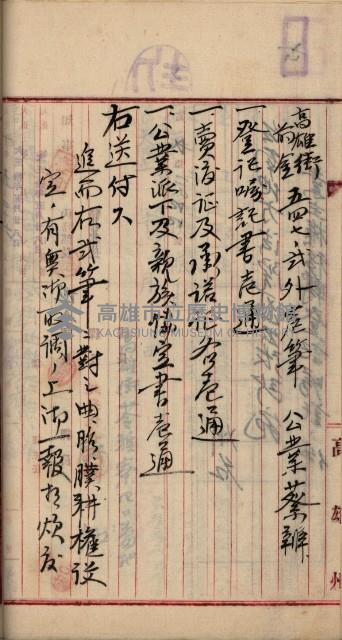 高雄街
前金 五四七ノ弍外壱筆 公業蔡辦
一、登記嘱託書壱通
一、賣渡証及承諾書各壱通
一、公業派下及親族協定書壱通
右送付ス
追而右弍筆ニ對シ 贌耕權設
定ノ有無御取調ノ上御一報相煩度
高雄州
高雄市立歷史博物館
KAOHSIUNG MUSEUM OF HISTORY